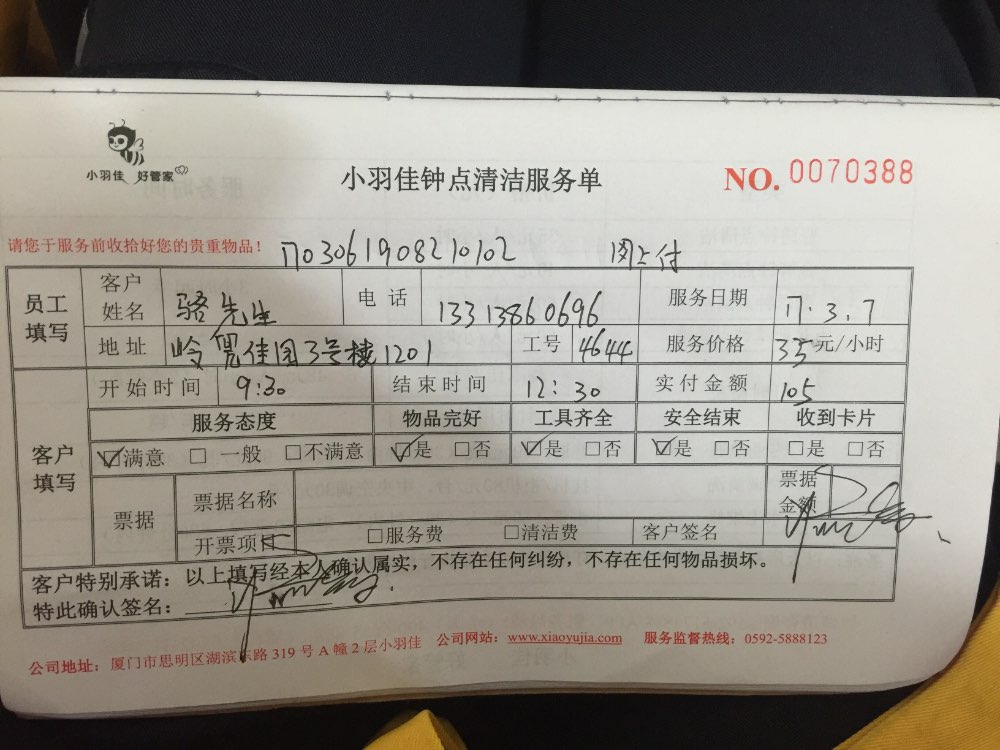 小羽佳 好管家
小羽佳钟点清洁服务单
NO. 0070388
请您于服务前收拾好您的贵重物品！
1703061908210102 网上付
员工填写 客户姓名 骆先生 电话 13313860696 服务日期 17.3.7
地址 岭兜佳园3号楼1201 工号 4644 服务价格 35元/小时
客户填写 开始时间 9:30 结束时间 12:30 实付金额 105
服务态度 物品完好 工具齐全 安全结束 收到卡片
☑满意 □一般 □不满意 ☑是 □否 ☑是 □否 ☑是 □否 □是 □否
票据 票据名称 票据金额
开票项目 □服务费 □清洁费 客户签名
客户特别承诺：以上填写经本人确认属实，不存在任何纠纷，不存在任何物品损坏。
特此确认签名：
公司地址：厦门市思明区湖滨东路319号A幢2层小羽佳 公司网站：www.xiaoyujia.com 服务监督热线：0592-5888123